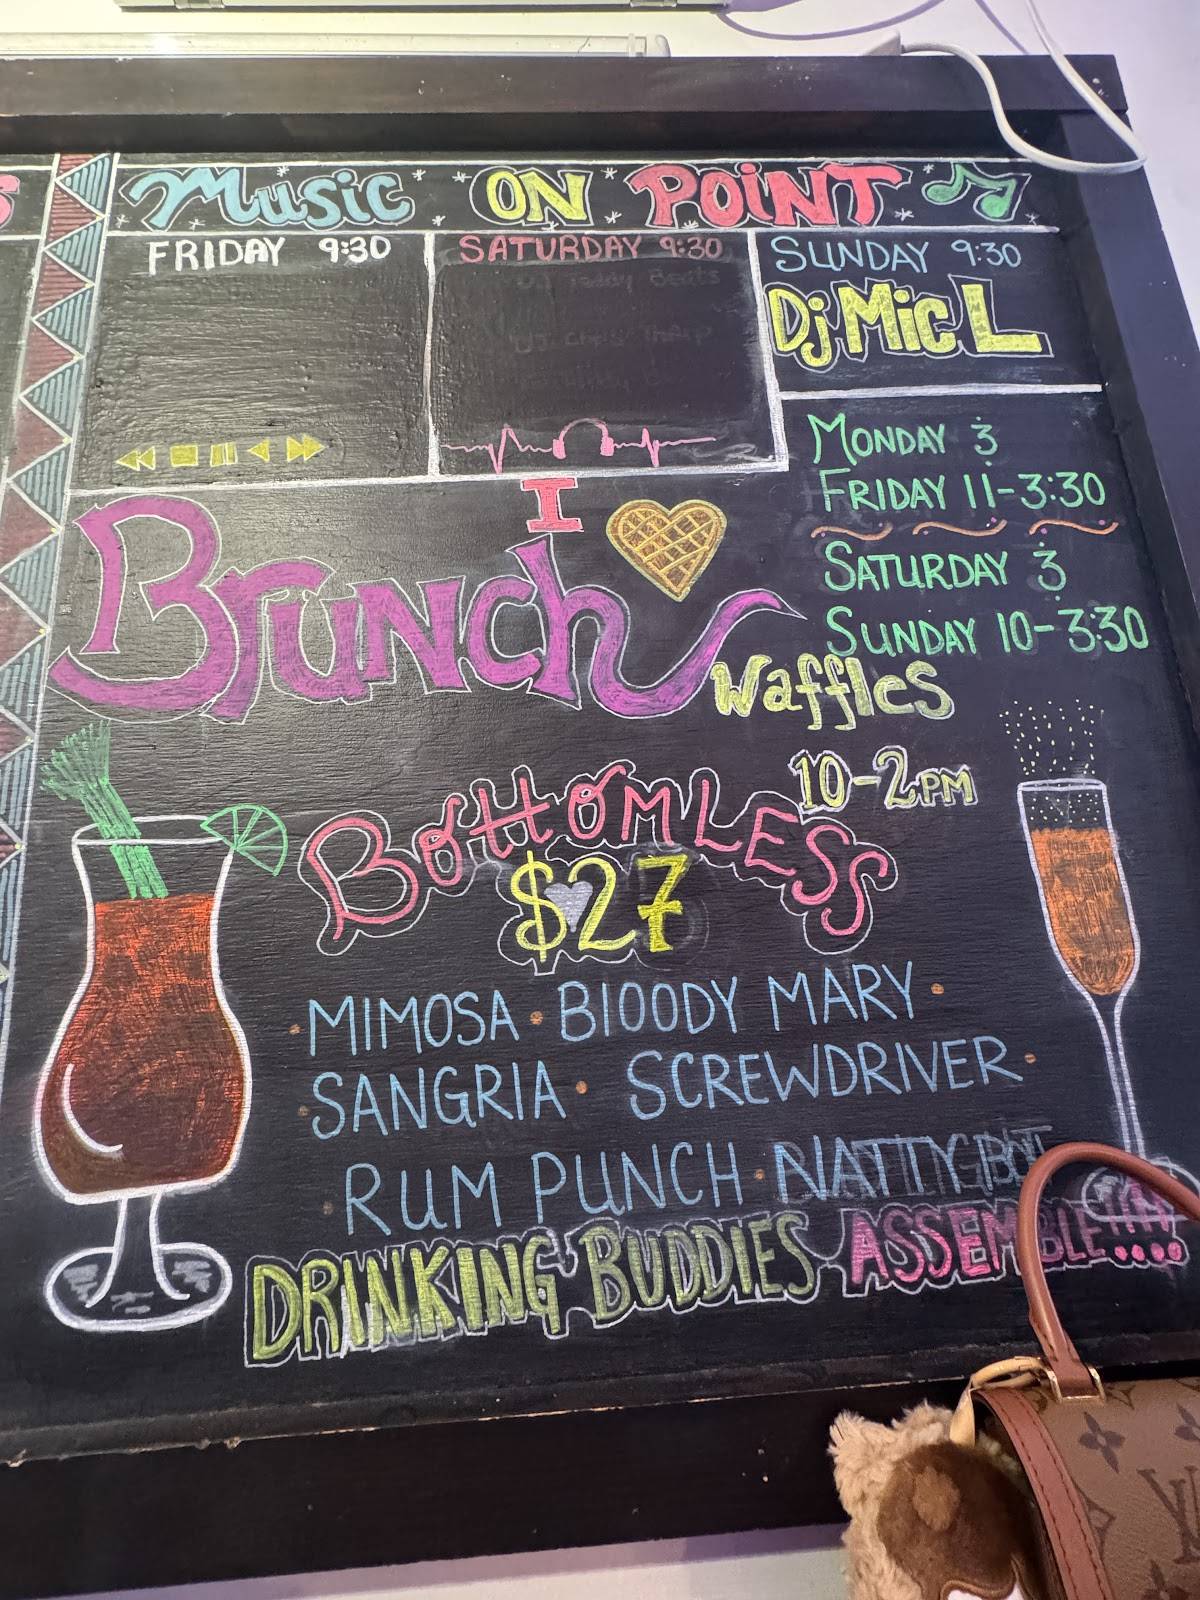 Music ON POINT
FRIDAY 9:30
SATURDAY 9:30
DJ Teddy Beats
SUNDAY 9:30
Dj Mic L
MONDAY &
FRIDAY 11-3:30
SATURDAY &
SUNDAY 10-3:30
I
Brunch
Waffles
10-2PM
BOTTOMLESS
$27
MIMOSA · BLOODY MARY ·
· SANGRIA · SCREWDRIVER ·
· RUM PUNCH · NATTYGBOH
DRINKING BUDDIES ASSEMBLE!!!!